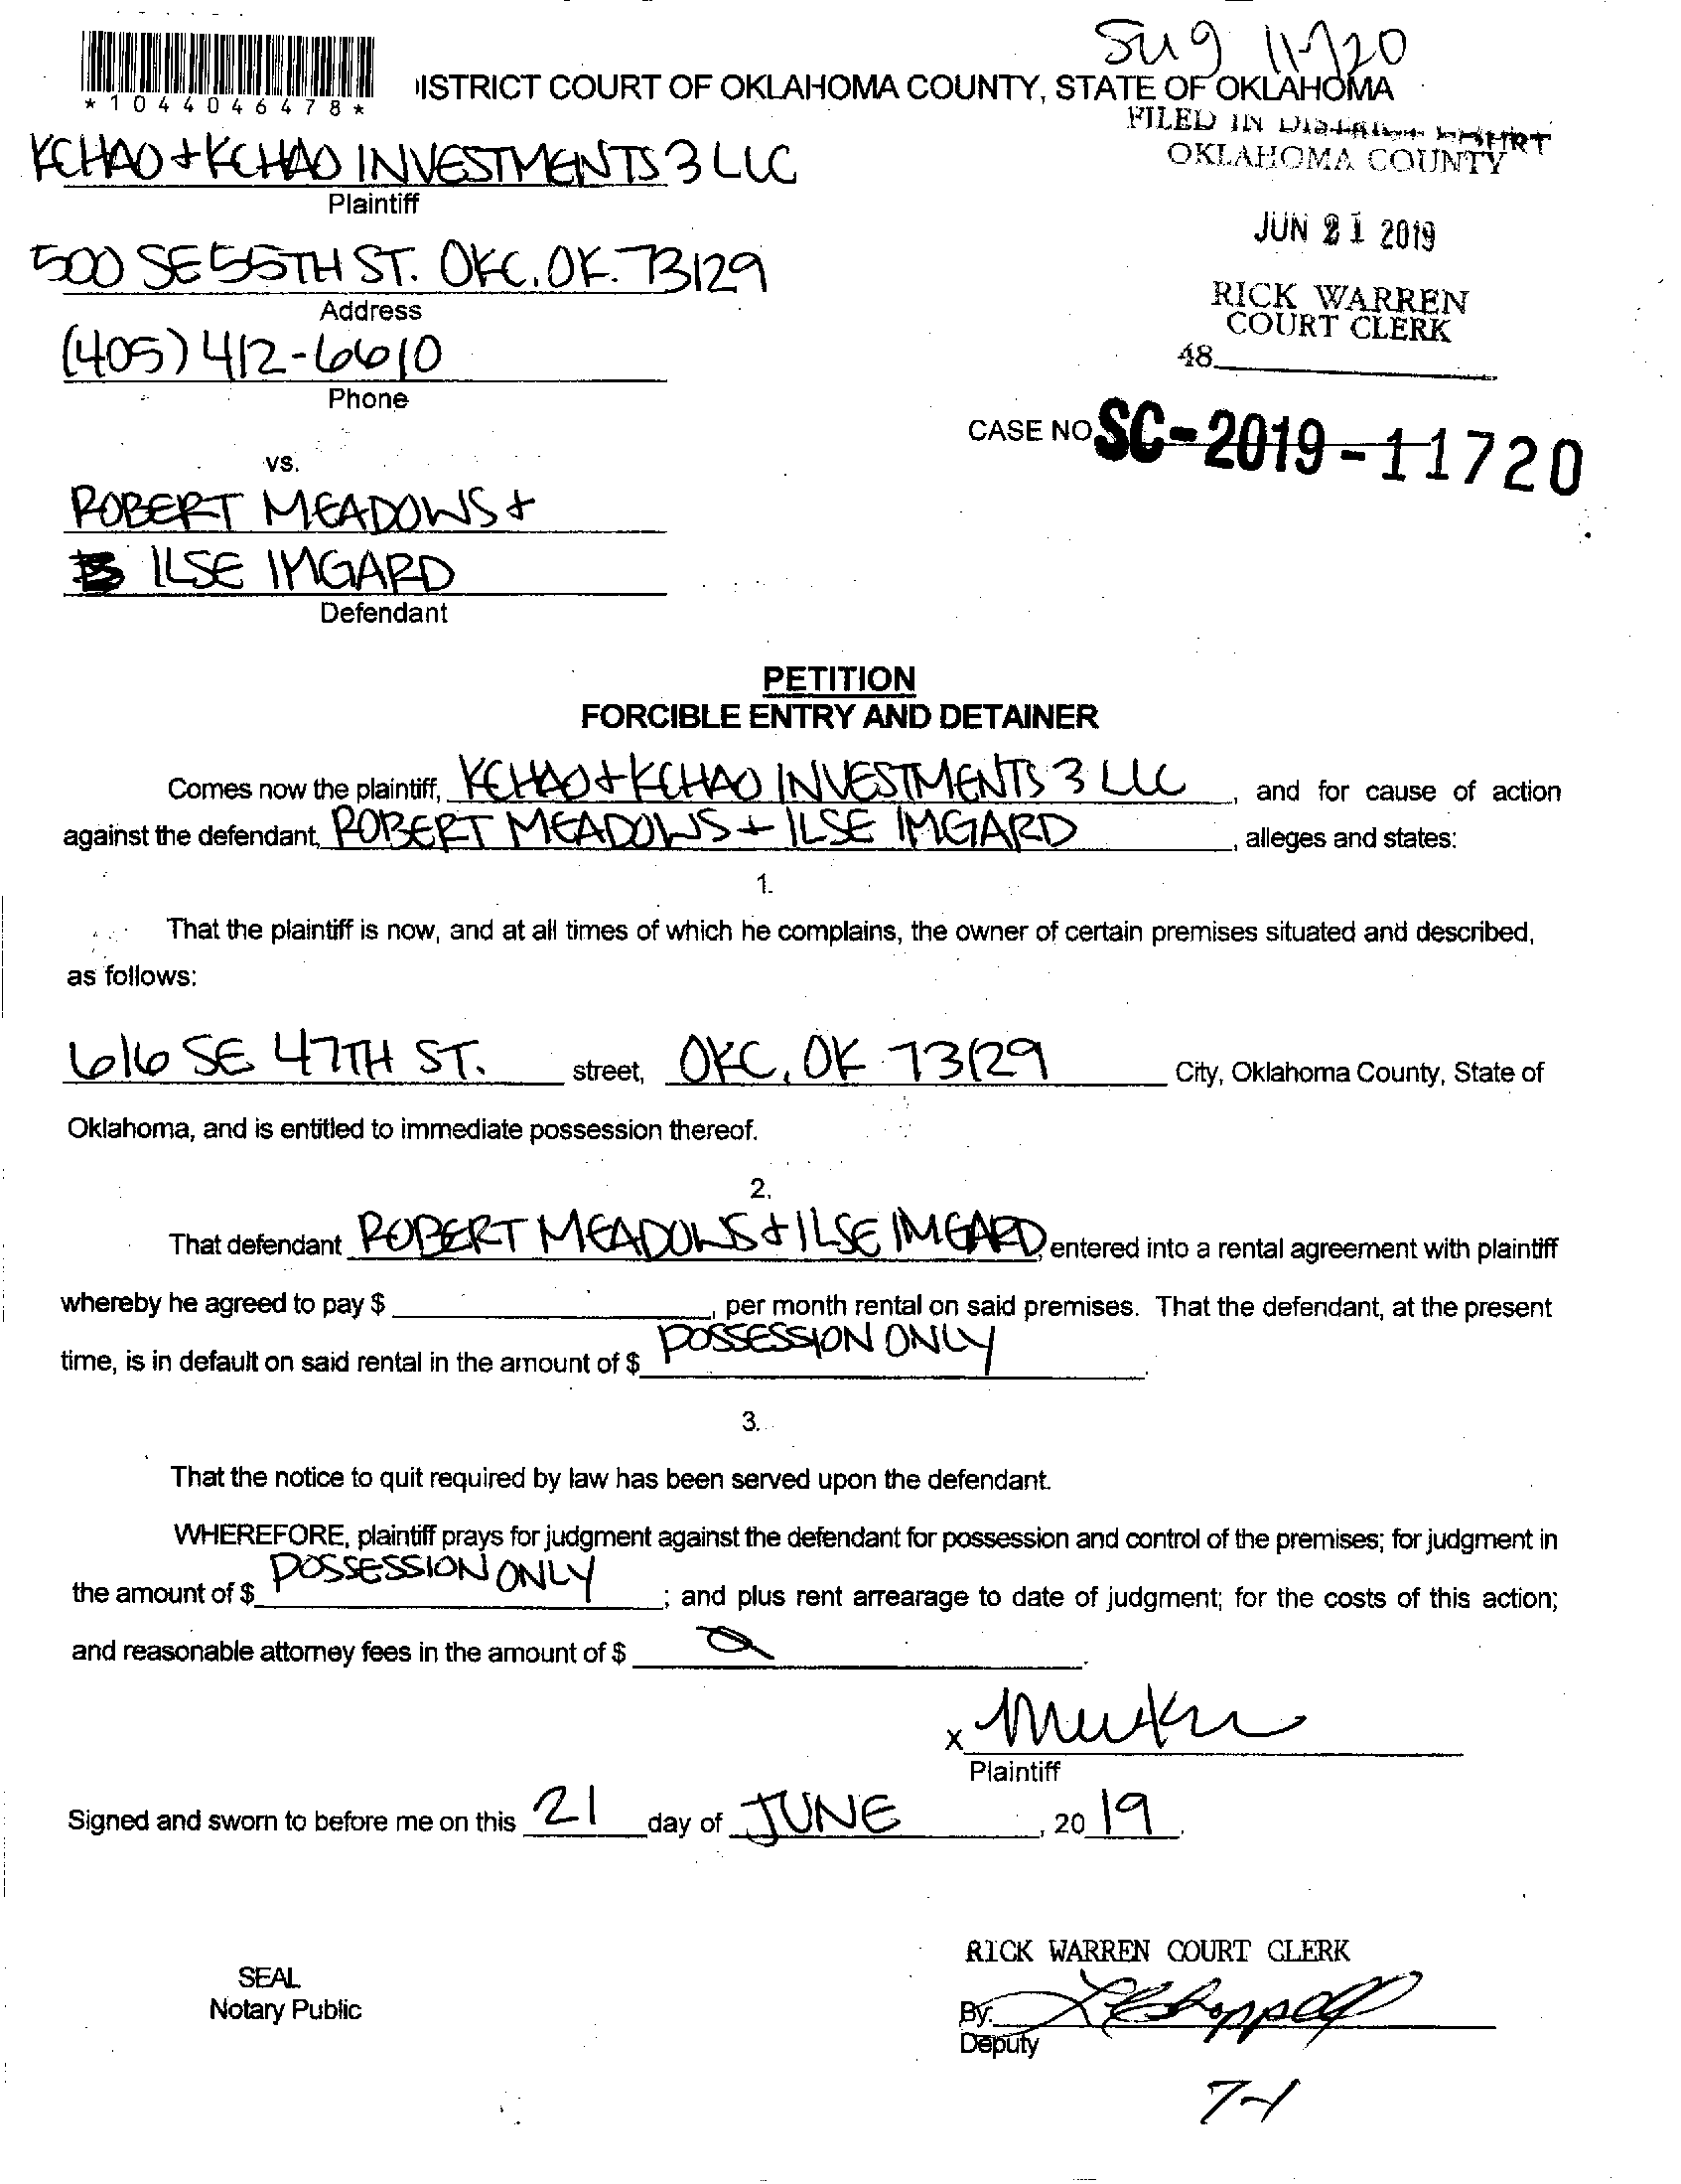 Sug 11720
*1044046478*
ISTRICT COURT OF OKLAHOMA COUNTY, STATE OF OKLAHOMA
FILED IN DISTRICT COURT
OKLAHOMA COUNTY
KCHAO + KCHAO INVESTMENTS 3 LLC
Plaintiff
JUN 21 2019
500 SE 55TH ST. OKC. OK. 73129
Address
RICK WARREN
COURT CLERK
(405) 412-6610
48
Phone
CASE NO SC-2019-11720
vs.
ROBERT MEADOWS +
ILSE IMGARD
Defendant
PETITION
FORCIBLE ENTRY AND DETAINER
Comes now the plaintiff, KCHAO + KCHAO INVESTMENTS 3 LLC, and for cause of action
against the defendant, ROBERT MEADOWS + ILSE IMGARD, alleges and states:
1.
That the plaintiff is now, and at all times of which he complains, the owner of certain premises situated and described,
as follows:
616 SE 47TH ST. street, OKC, OK 73129 City, Oklahoma County, State of
Oklahoma, and is entitled to immediate possession thereof.
2.
That defendant ROBERT MEADOWS + ILSE IMGARD, entered into a rental agreement with plaintiff
whereby he agreed to pay $ , per month rental on said premises. That the defendant, at the present
time, is in default on said rental in the amount of $ POSSESSION ONLY.
3.
That the notice to quit required by law has been served upon the defendant.
WHEREFORE, plaintiff prays for judgment against the defendant for possession and control of the premises; for judgment in
the amount of $ POSSESSION ONLY; and plus rent arrearage to date of judgment; for the costs of this action;
and reasonable attorney fees in the amount of $ 0.
X
Plaintiff
Signed and sworn to before me on this 21 day of JUNE, 20 19.
RICK WARREN COURT CLERK
SEAL
Notary Public
By:
Deputy
7-1